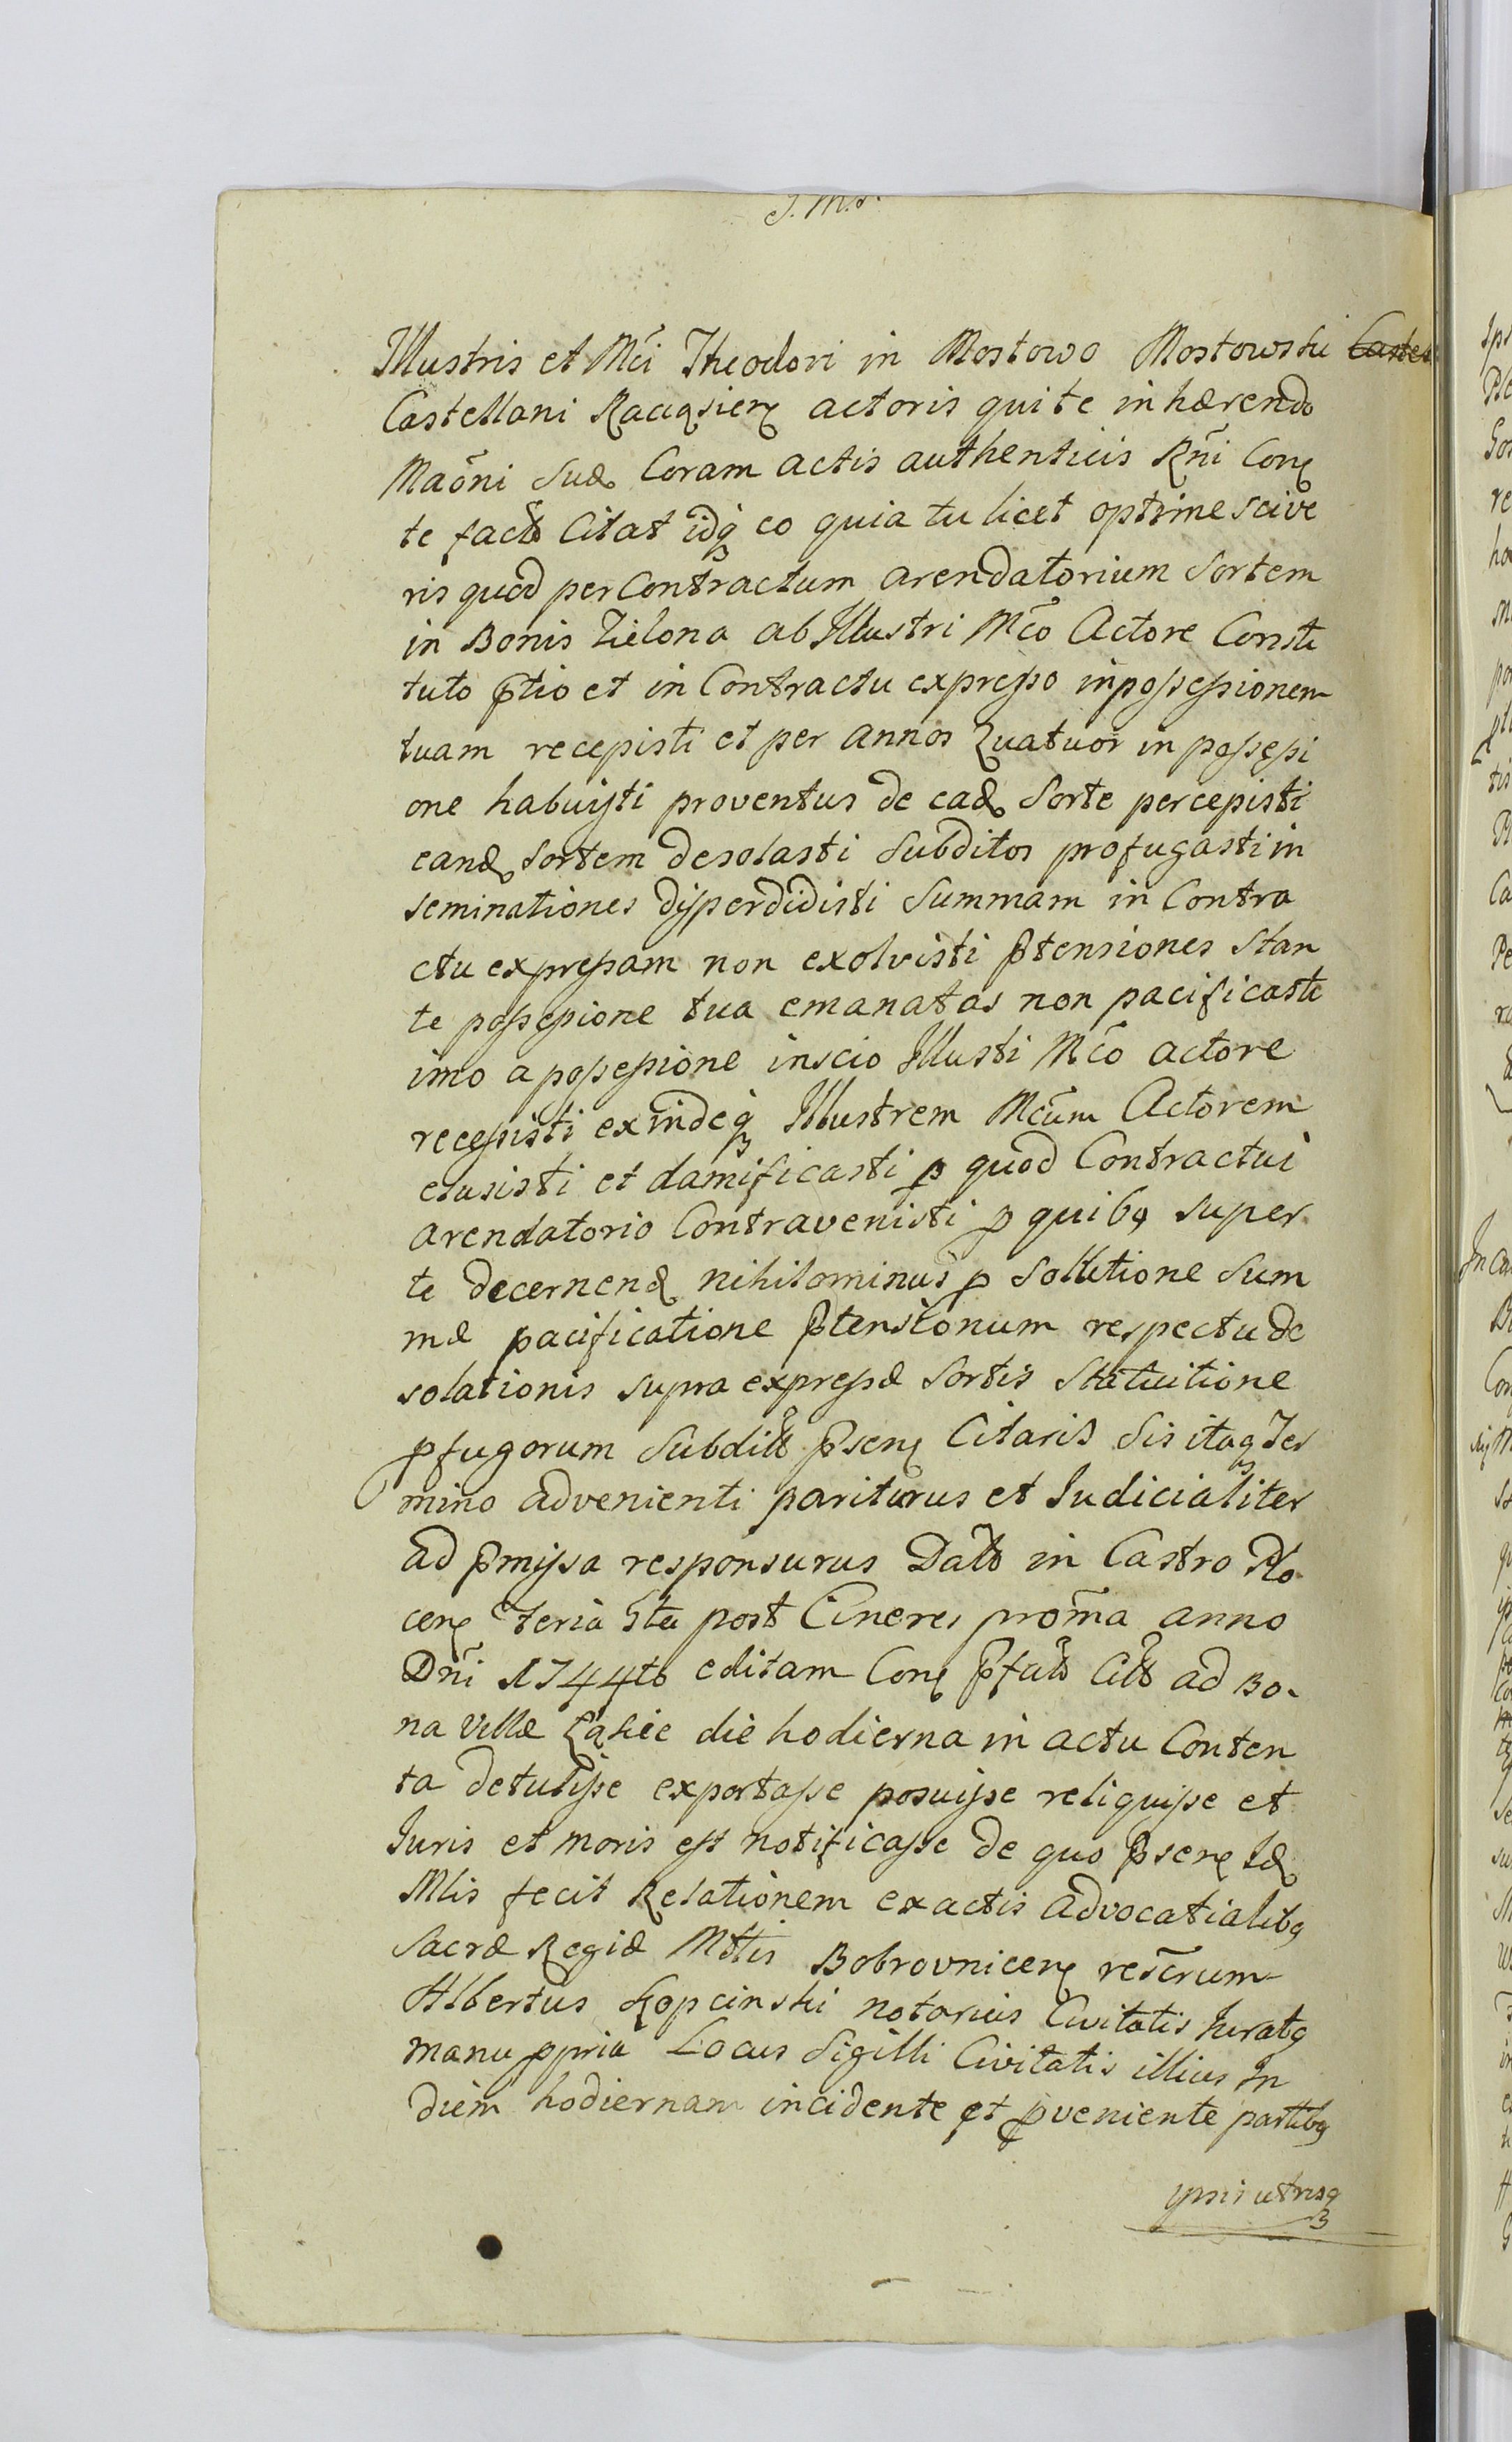 J. M. J.
Illustris et Mci Theodori in Mostowo Mostowski Castel
Castellani Raciąsien actoris qui te inhærendo
Maōni suæ Coram actis authenticis Rñi Con
te factæ Citat idq̃ eo quia tu licet optime scive
ris quod per Contractum arendatorium Sortem
in Bonis Zielona ab Illustri Mco Actore Consti
tuto p̃tio et in Contractu expresso in possessionem
tuam recepisti et per annos Quatuor in possessi
one habuisti proventus de ead. Sorte percepisti
eand. Sortem desolasti Subditos profugasti in
seminationes disperdidisti Summam in Contra
ctu expressam non exolvisti p̃tensiones Stan
te possessione tua emanatas non pacificasti
imo a possessione inscio Illusti Mco actore
recessisti exindeq̃ Illustrem Mcum Actorem
elusisti et damificasti p quod Contractui
arendatorio Contravenisti p quibq super
te decernend nihilominus p Sollutione Sum
mæ pacificatione p̃tensionum respectu de
solationis supra expressæ Sortis Statuitione
pfugorum Subditt p̃sen Citaris Sis itaq Ter
mino advenienti pariturus et Iudicialiter
ad p̃missa responsurus Datt in Castro Plo
cen Feria 5ta post Cineres proxma anno
Dñi 1744to editam Con p̃fatt Citt ad Bo-
na Villæ Łąkie die hodierna in actu Conten
ta detulisse exportasse posuisse reliquisse et
Iuris et moris est notificasse de quo p̃sen Id
Mlis fecit Relationem ex actis advocatialibq
Sacræ Regiæ Mttis Bobrovnicen rescrum
Albertus Kopcinski notarius Civitatis Iuratq
manu ppria Locus Sigilli Civitatis illius In
diem hodiernam incidente et pveniente partibq
ipsis utrisq